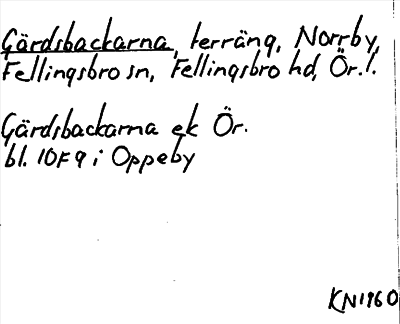 Gärdsbackarna, terräng, Norrby,
Fellingsbro sn, Fellingsbro hd, Ör. l.
Gärdsbackarna ek Ör.
bl. 10F9 i Oppeby
KN1960